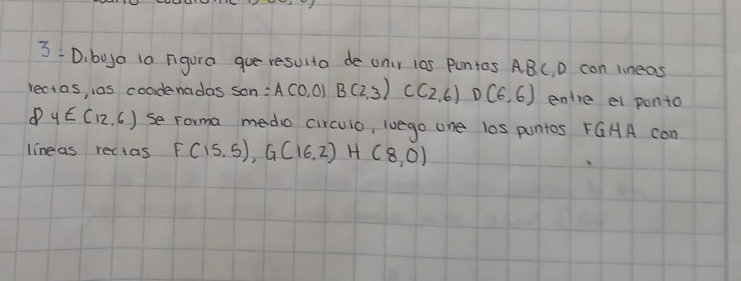 3= Dibujo la Figura que resulta de unir los puntos A,B,C,D con lineas
rectas, las coordenadas son: A(0,0) B(2,3) C(2,6) D(6,6) entre el punto
D y E (12,6) se Forma medio circulo, luego une los puntos FGHA con
líneas rectas F(15,5), G(16,2) H (8,0)